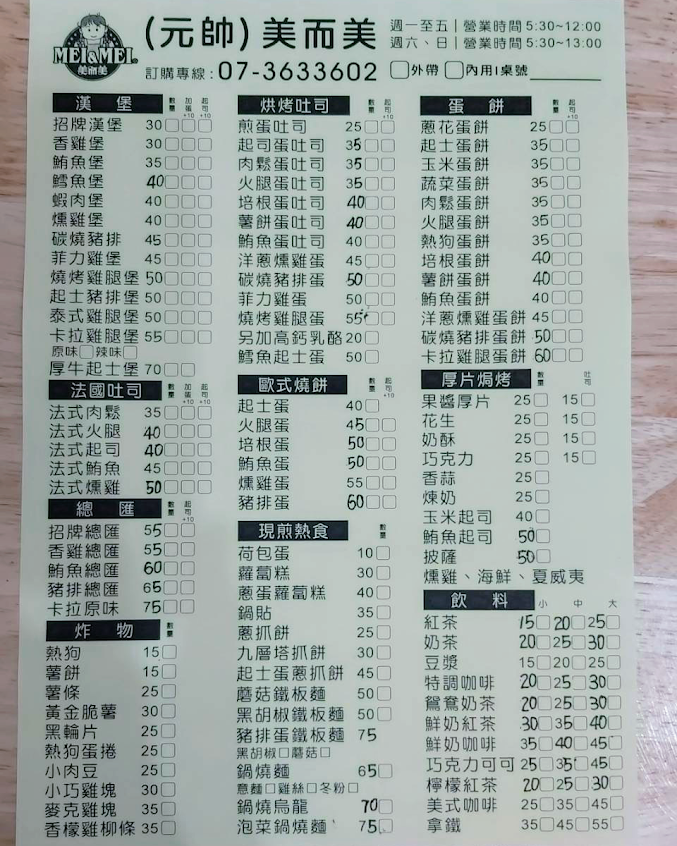 MEI&MEI
美而美
(元帥) 美而美
週一至五｜營業時間 5:30~12:00
週六、日｜營業時間 5:30~13:00
訂購專線：07-3633602 □外帶 □內用｜桌號
漢堡 數量 加蛋+10 起司+10
招牌漢堡 30
香雞堡 30
鮪魚堡 35
鱈魚堡 40
蝦肉堡 40
燻雞堡 40
碳燒豬排 45
菲力雞堡 45
燒烤雞腿堡 50
起士豬排堡 50
泰式雞腿堡 50
卡拉雞腿堡 55
原味□辣味□
厚牛起士堡 70
法國吐司 數量 加蛋+10 起司+10
法式肉鬆 35
法式火腿 40
法式起司 40
法式鮪魚 45
法式燻雞 50
總匯 數量 起司+10
招牌總匯 55
香雞總匯 55
鮪魚總匯 60
豬排總匯 65
卡拉原味 75
炸物 數量
熱狗 15
薯餅 15
薯條 25
黃金脆薯 30
黑輪片 25
熱狗蛋捲 25
小肉豆 25
小巧雞塊 30
麥克雞塊 35
香檬雞柳條 35
烘烤吐司 數量 起司+10
煎蛋吐司 25
起司蛋吐司 35
肉鬆蛋吐司 35
火腿蛋吐司 35
培根蛋吐司 40
薯餅蛋吐司 40
鮪魚蛋吐司 40
洋蔥燻雞蛋 45
碳燒豬排蛋 50
菲力雞蛋 50
燒烤雞蛋 55
另加高鈣乳酪 20
鱈魚起士蛋 50
歐式燒餅 數量 起司+10
起士蛋 40
火腿蛋 45
培根蛋 50
鮪魚蛋 50
燻雞蛋 55
豬排蛋 60
現煎熱食 數量
荷包蛋 10
蘿蔔糕 30
蔥蛋蘿蔔糕 40
鍋貼 35
蔥抓餅 25
九層塔抓餅 30
起士蛋蔥抓餅 45
蘑菇鐵板麵 50
黑胡椒鐵板麵 50
豬排蛋鐵板麵 75
黑胡椒□蘑菇□
鍋燒麵 65
意麵□雞絲□冬粉□
鍋燒烏龍 70
泡菜鍋燒麵 75
蛋餅 數量 起司+10
蔥花蛋餅 25
起士蛋餅 35
玉米蛋餅 35
蔬菜蛋餅 35
肉鬆蛋餅 35
火腿蛋餅 35
熱狗蛋餅 35
培根蛋餅 40
薯餅蛋餅 40
鮪魚蛋餅 40
洋蔥燻雞蛋餅 45
碳燒豬排蛋餅 50
卡拉雞腿蛋餅 60
厚片焗烤 數量 吐司
果醬厚片 25 15
花生 25 15
奶酥 25 15
巧克力 25 15
香蒜 25
煉奶 25
玉米起司 40
鮪魚起司 50
披薩 50
燻雞、海鮮、夏威夷
飲料 小 中 大
紅茶 15 20 25
奶茶 20 25 30
豆漿 15 20 25
特調咖啡 20 25 30
鴛鴦奶茶 20 25 30
鮮奶紅茶 30 35 40
鮮奶咖啡 35 40 45
巧克力可可 25 35 45
檸檬紅茶 20 25 30
美式咖啡 25 35 45
拿鐵 35 45 55